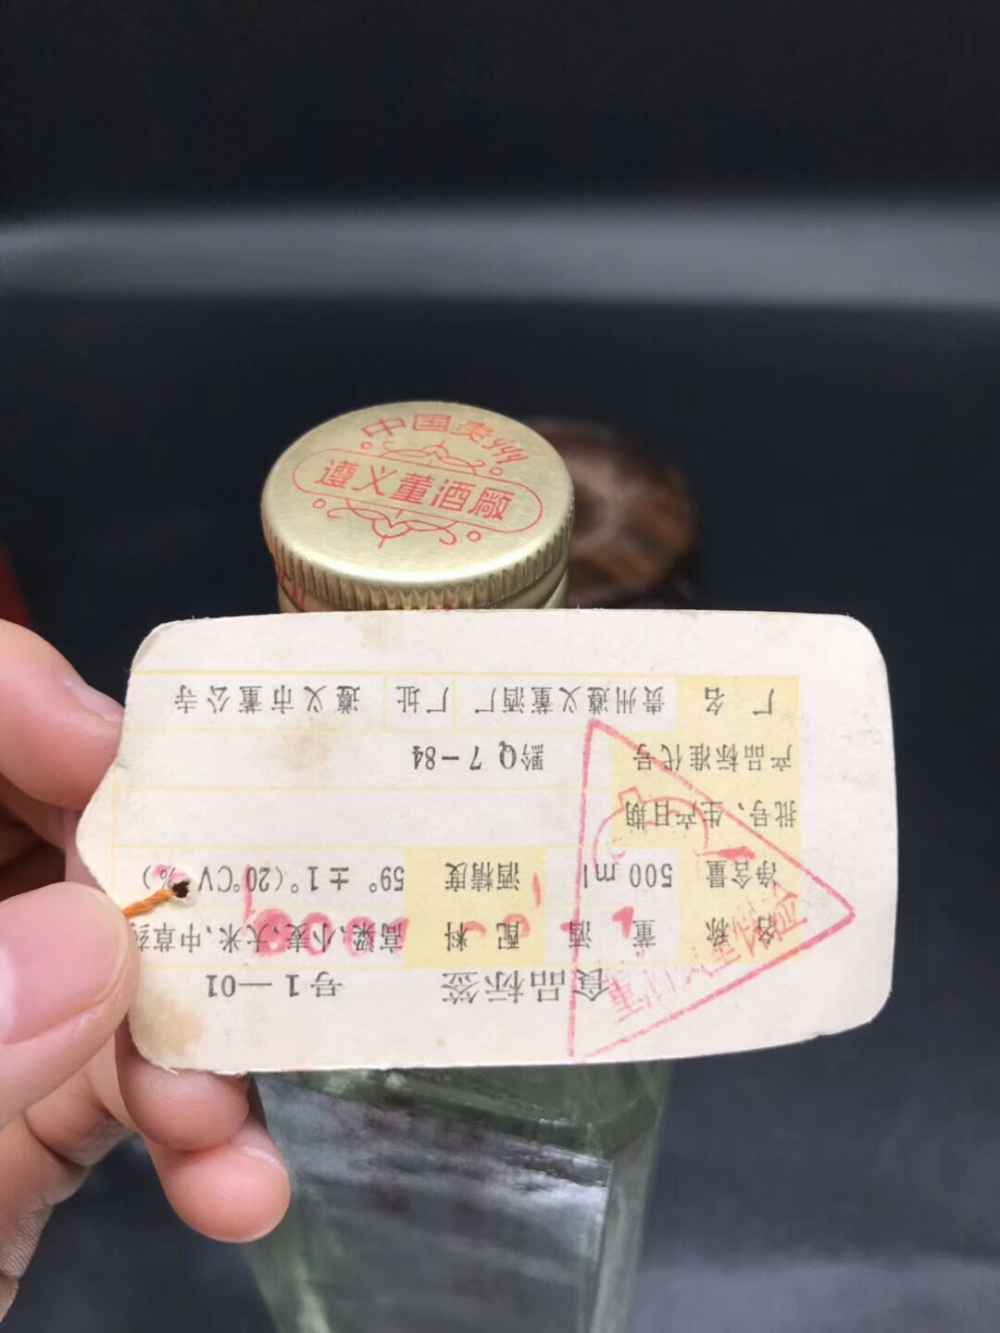 中国贵州
遵义董酒廠
食品标签 号1—01
名称 董酒 配料 高粱、小麦、大米、中草药
净含量 500 ml 酒精度 59° ±1°(20°CV %)
批号、生产日期
产品标准代号 黔Q 7-84
厂名 贵州遵义董酒厂 厂址 遵义市董公寺